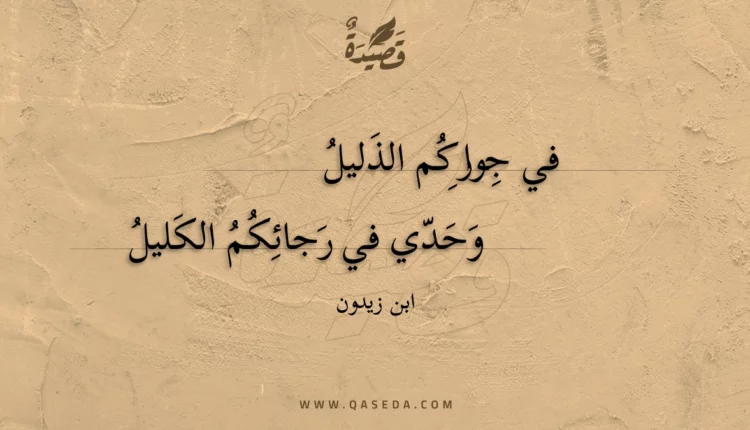 قَصِيدَةٌ
في جِوارِكُم الذَليلُ
وَحَدّي في رَجائِكُمُ الكَليلُ
ابن زيدون
WWW.QASEDA.COM